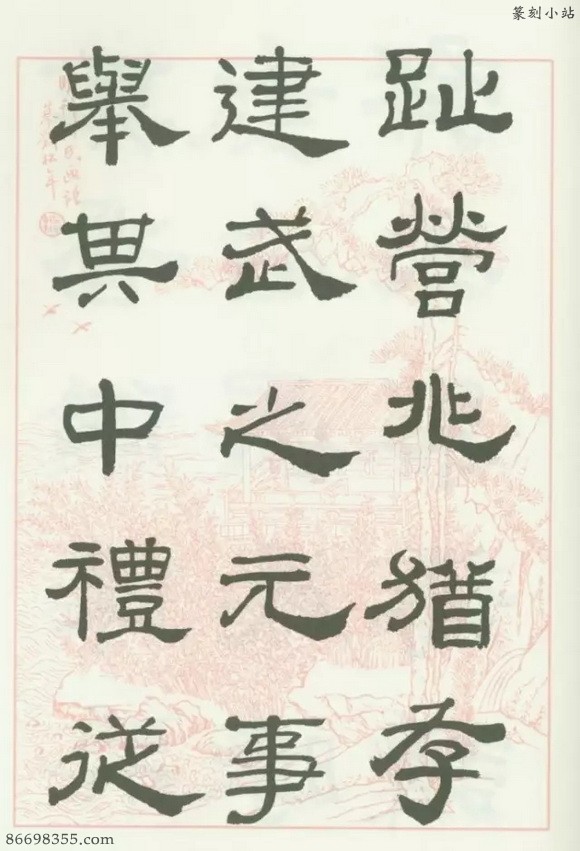 篆刻小站
趾營兆猶存
建武之元事
舉其中禮從
86698355.com